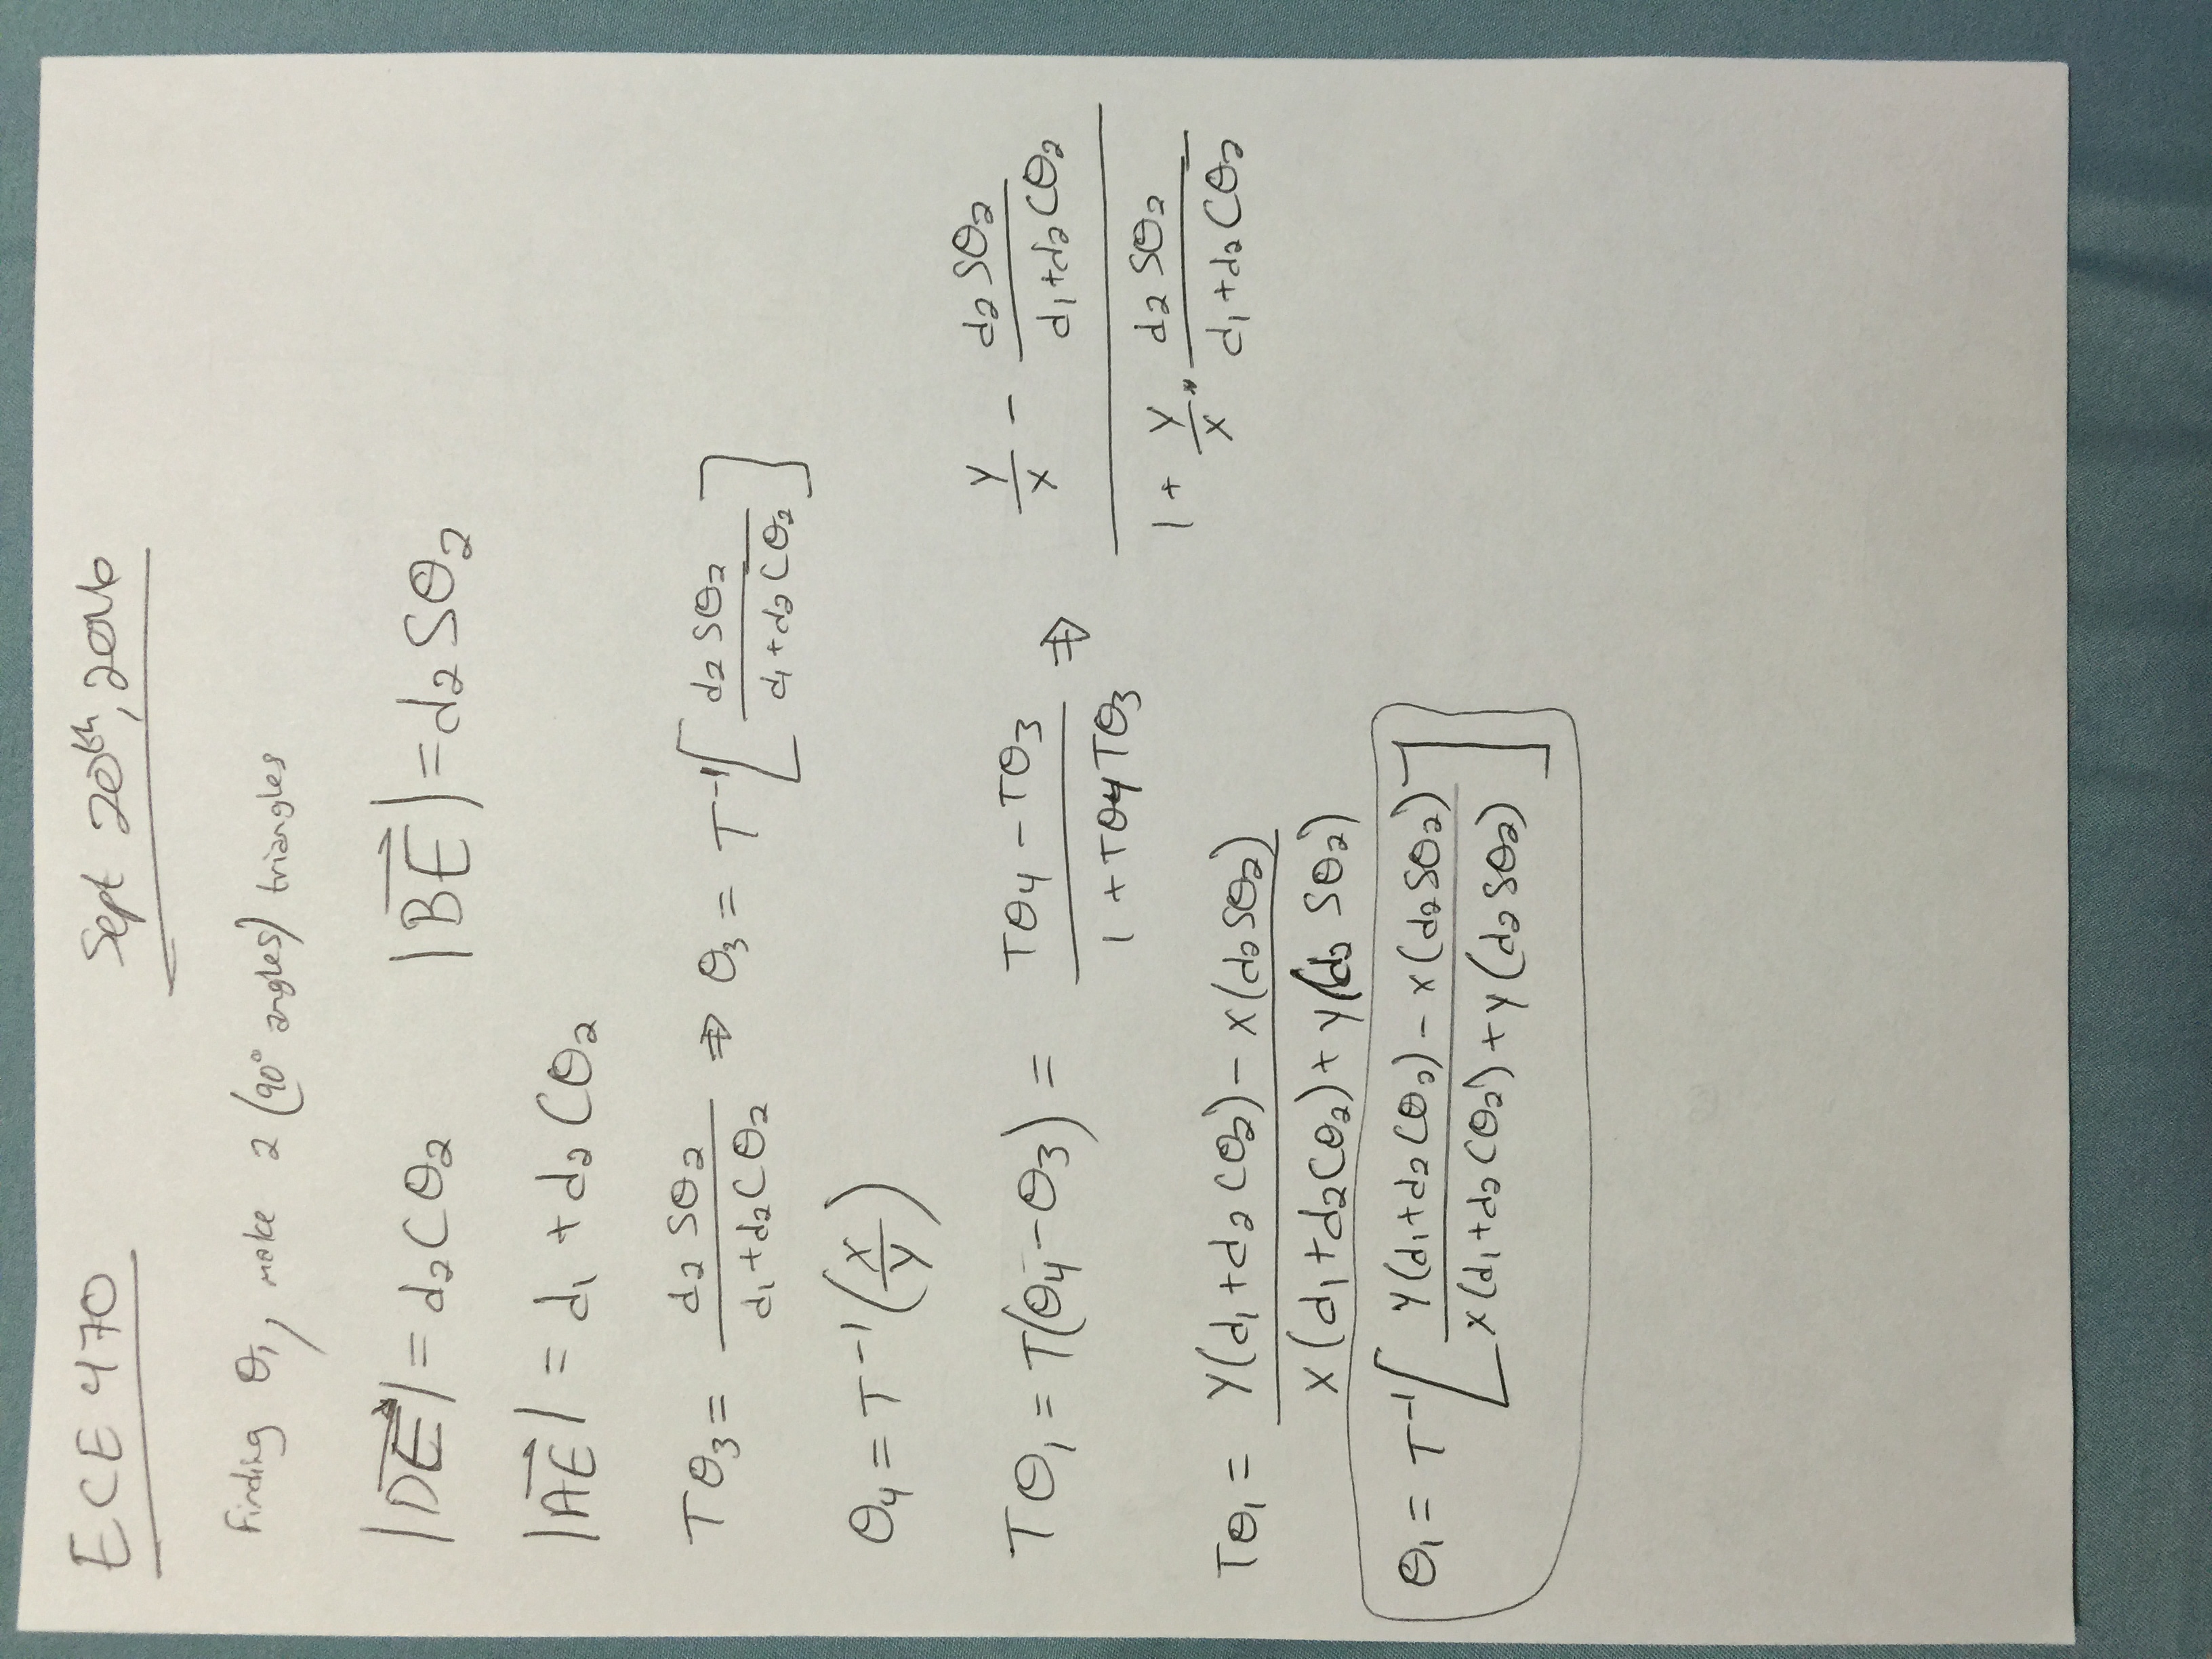 ECE 470 Sept 20th, 2016
Finding θ₁, make 2 (90° angles) triangles
|DE→| = d₂Cθ₂ |BE→| = d₂Sθ₂
|AE→| = d₁ + d₂Cθ₂
Tθ₃ = d₂Sθ₂ / d₁+d₂Cθ₂ ⇒ θ₃ = T⁻¹[d₂Sθ₂ / d₁+d₂Cθ₂]
θ₄ = T⁻¹(x/y)
Tθ₁ = T(θ₄-θ₃) = Tθ₄ - Tθ₃ / 1 + Tθ₄Tθ₃ ⇒ y/x - d₂Sθ₂ / d₁+d₂Cθ₂ / 1 + y/x · d₂Sθ₂ / d₁+d₂Cθ₂
Tθ₁ = y(d₁+d₂Cθ₂) - x(d₂Sθ₂) / x(d₁+d₂Cθ₂) + y(d₂Sθ₂)
θ₁ = T⁻¹[y(d₁+d₂Cθ₂) - x(d₂Sθ₂) / x(d₁+d₂Cθ₂) + y(d₂Sθ₂)]